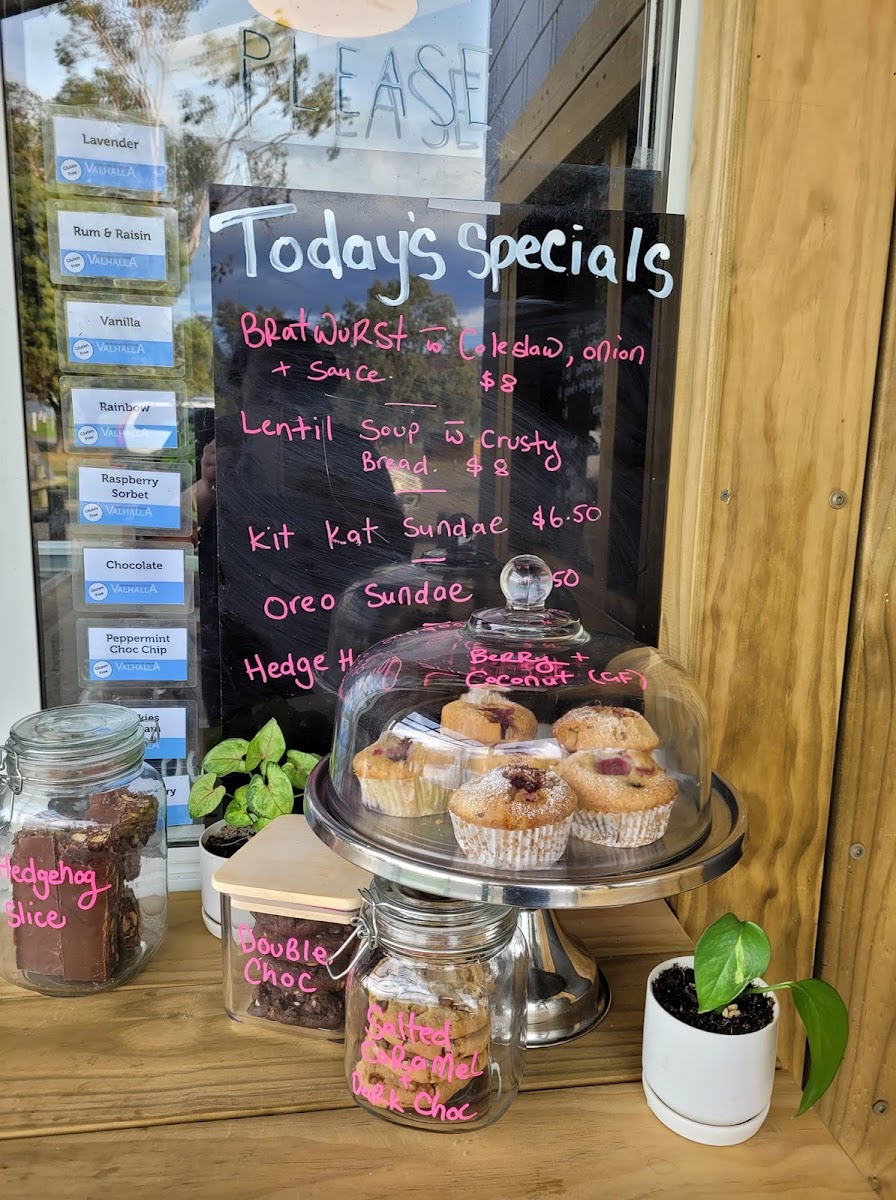 PLEASE
Lavender
Gluten Free
VALHALLA
Rum & Raisin
Gluten Free
VALHALLA
Vanilla
Gluten Free
VALHALLA
Rainbow
Gluten Free
VALHALLA
Raspberry
Sorbet
Gluten Free
VALHALLA
Chocolate
Gluten Free
VALHALLA
Peppermint
Choc Chip
Gluten Free
VALHALLA
Today's Specials
BRatWuRSt w Coleslaw, onion
+ Sauce. $8
Lentil Soup w Crusty
Bread. $8
Kit Kat Sundae $6.50
Oreo Sundae 50
Hedge H
BeRRy +
Coconut (GF)
Hedgehog
Slice
Double
Choc
Salted
CaRaMeL
+
DaRk Choc